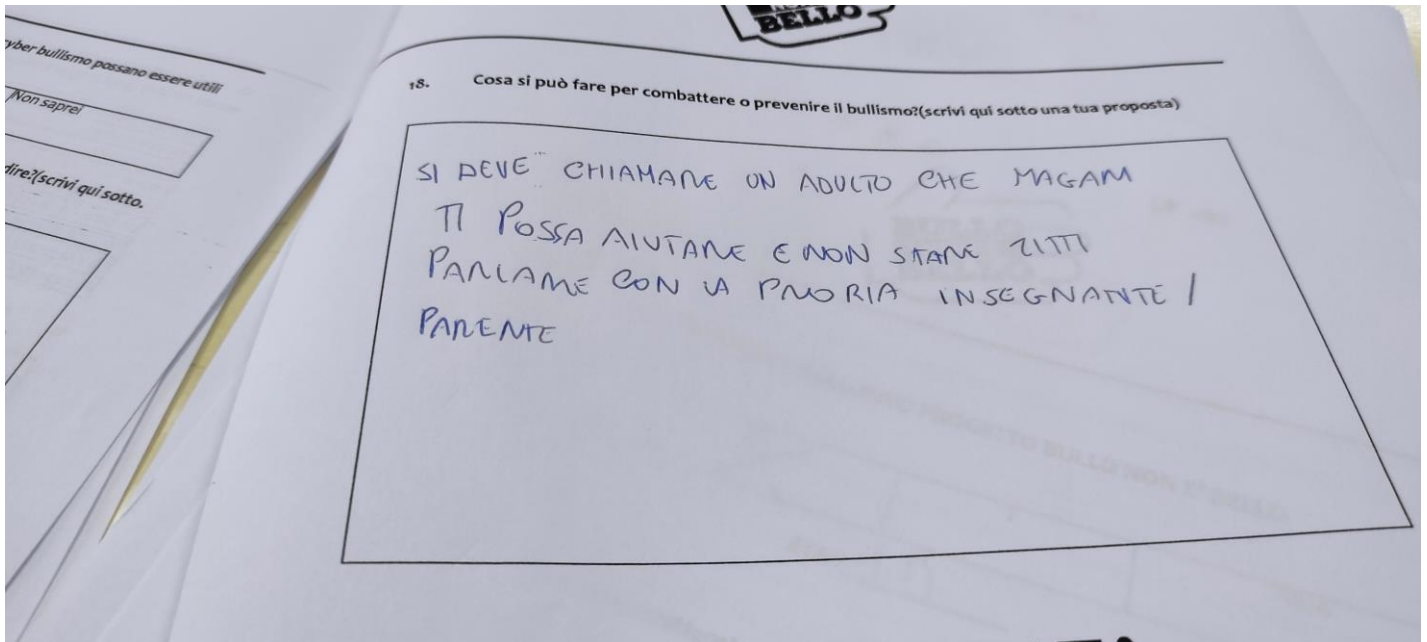 BELLO
yber bullismo possano essere utili
Non saprei
dire?(scrivi qui sotto.
18. Cosa si può fare per combattere o prevenire il bullismo?(scrivi qui sotto una tua proposta)
SI DEVE CHIAMARE UN ADULTO CHE MAGARI
TI POSSA AIUTARE E NON STARE ZITTI
PARLARE CON LA PRORIA INSEGNANTE /
PARENTE